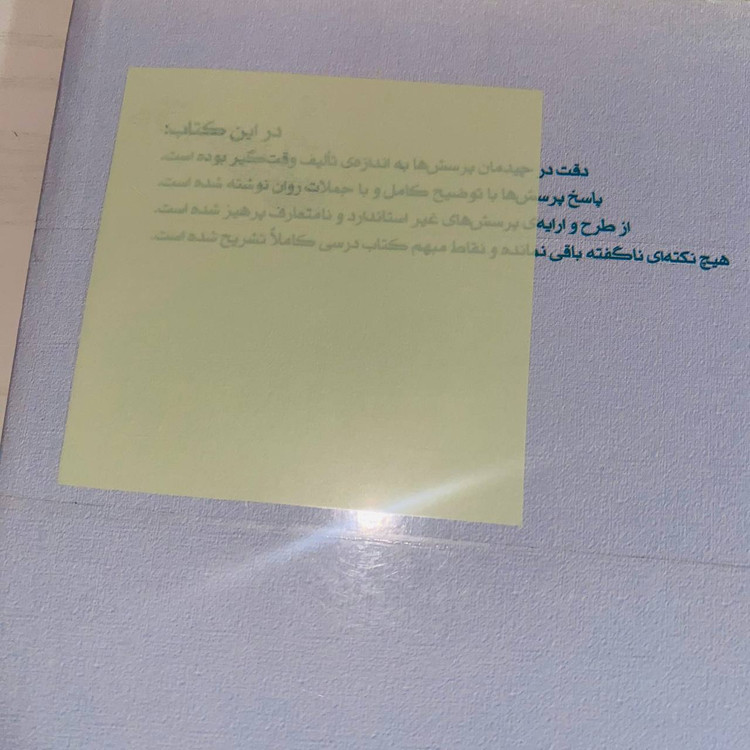 در این کتاب:
دقت در چیدمان پرسش‌ها به اندازه‌ی تألیف وقت‌گیر بوده است.
پاسخ پرسش‌ها با توضیح کامل و با جملات روان نوشته شده است.
از طرح و ارایه‌ی پرسش‌های غیر استاندارد و نامتعارف پرهیز شده است.
هیچ نکته‌ای ناگفته باقی نمانده و نقاط مبهم کتاب درسی کاملاً تشریح شده است.